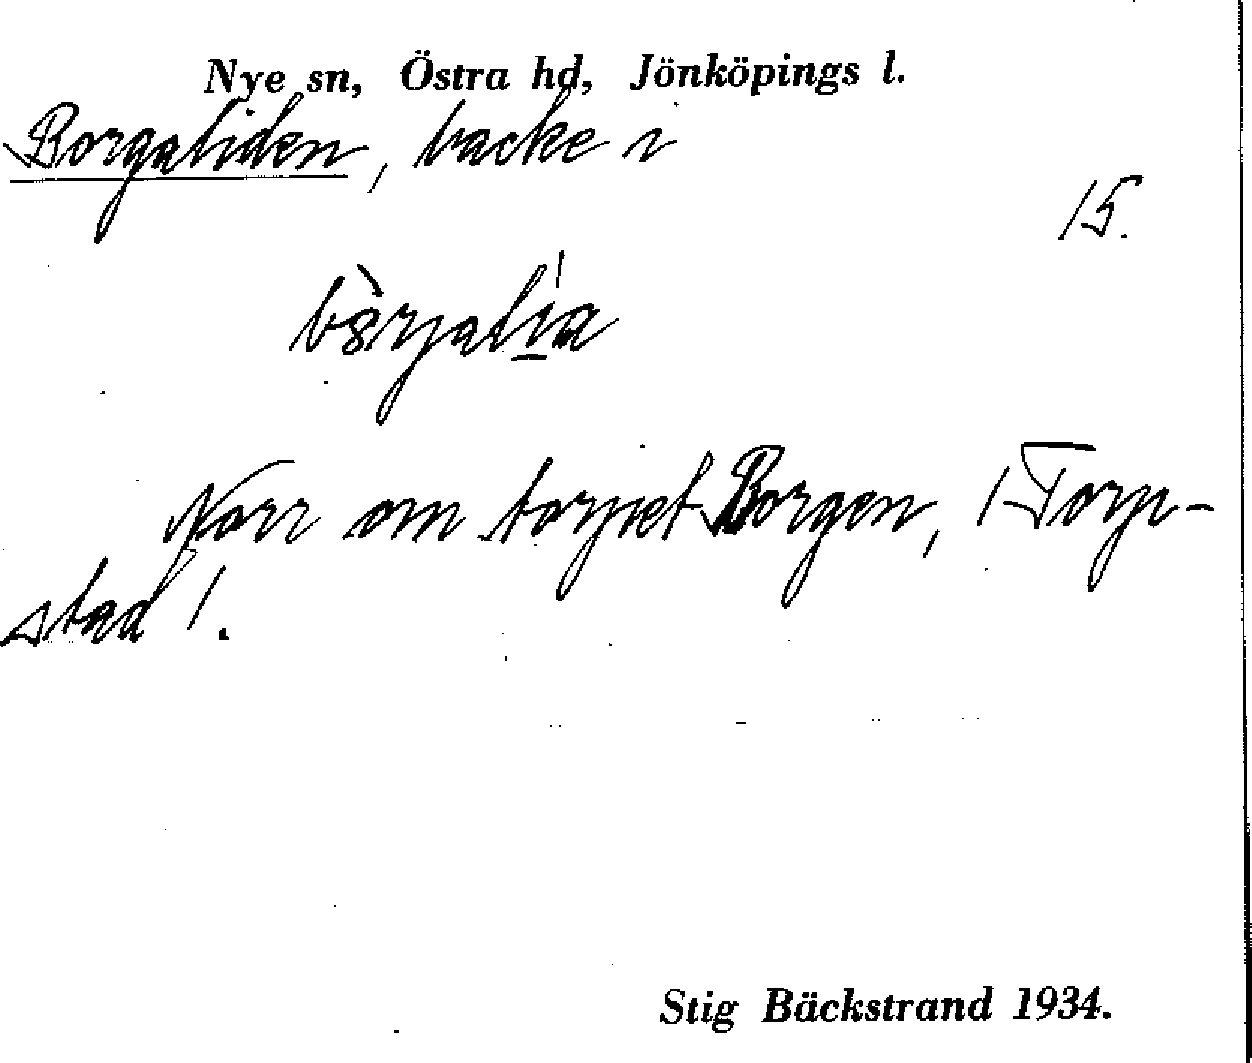 Nye sn, Östra hd, Jönköpings l.
Borgaliden, backe i
15.
Norr om torpet Borgen, /Torp-
stad/.
Stig Bäckstrand 1934.